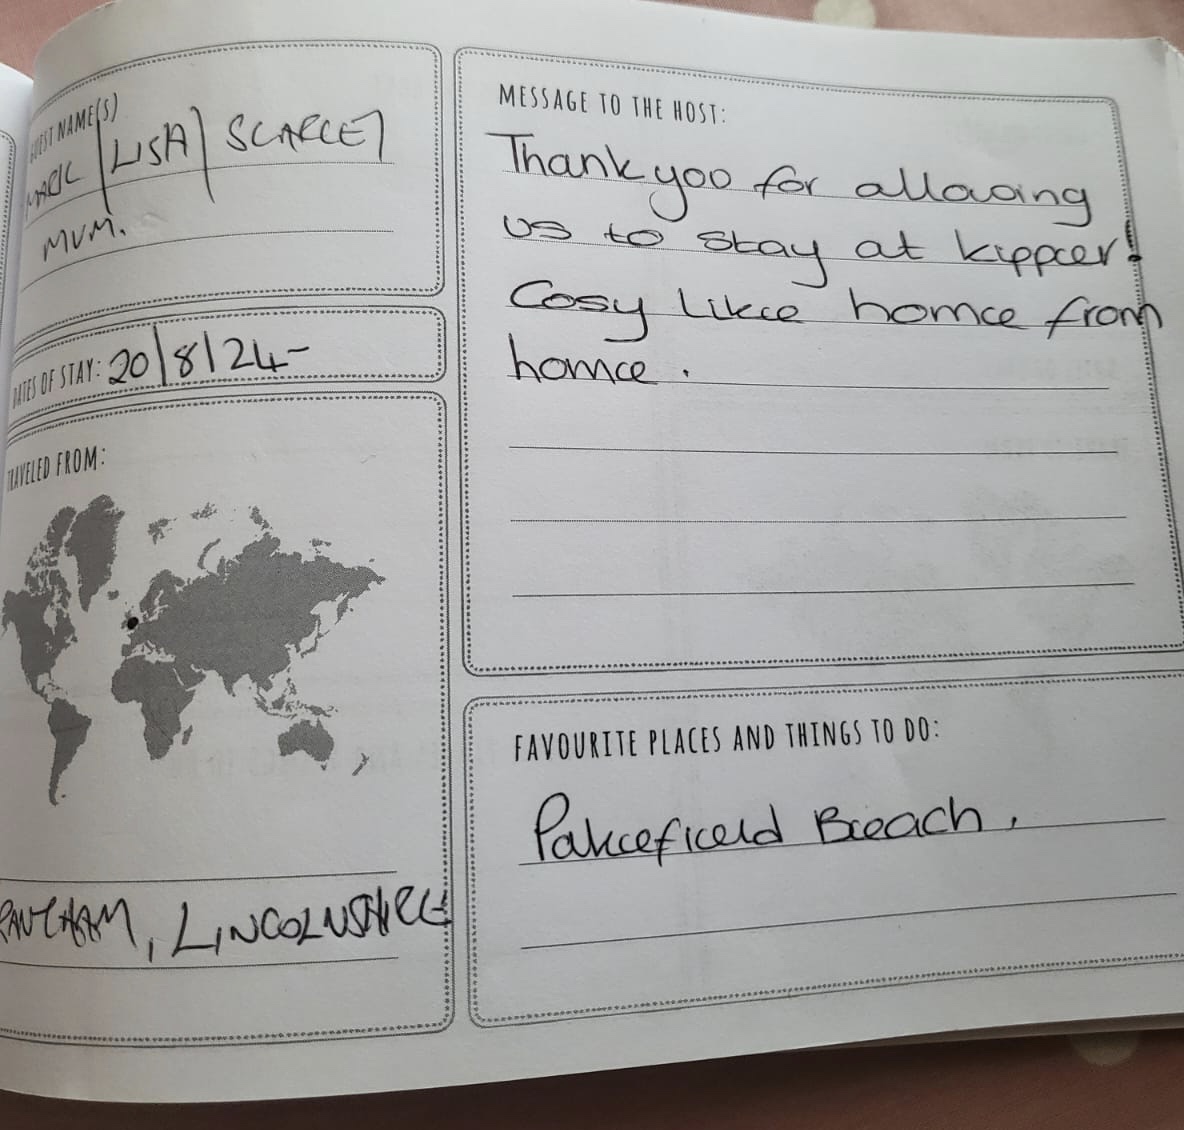 GUEST NAME(S)
MARK | LISA | SCARLET
MUM.
DATES OF STAY: 20/8/24-
TRAVELED FROM:
LINCOLNSHIRE
MESSAGE TO THE HOST:
Thank you for allowing
us to stay at kipper!
Cosy like home from
home.
FAVOURITE PLACES AND THINGS TO DO:
Pakefield Beach.